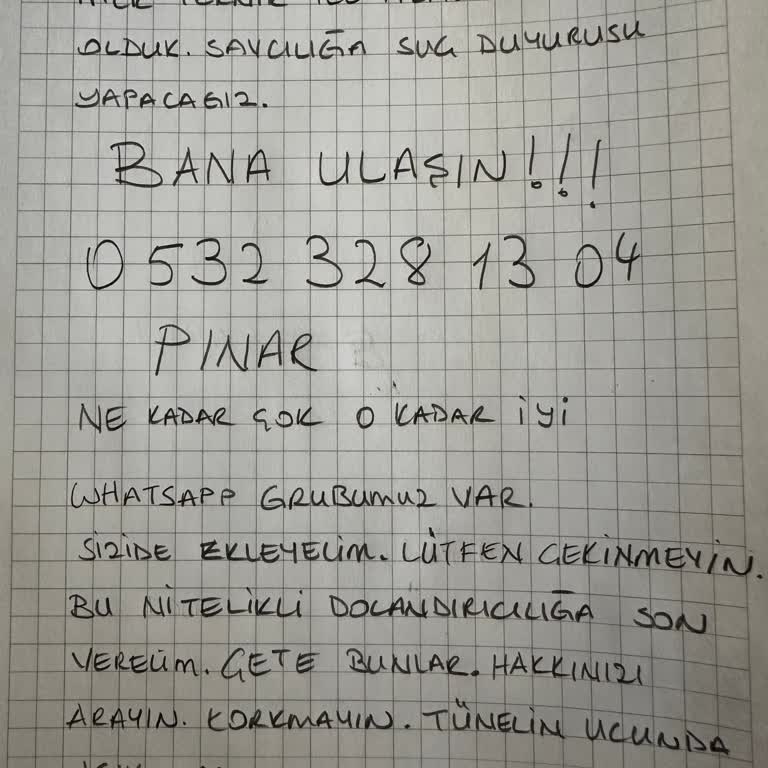 OLDUK. SAVCILIĞA SUÇ DUYURUSU
YAPACAĞIZ.
BANA ULAŞIN!!!
0 532 328 13 04
PINAR
NE KADAR ÇOK O KADAR İYİ
WHATSAPP GRUBUMUZ VAR.
SİZİDE EKLEYELİM. LÜTFEN ÇEKİNMEYİN.
BU NİTELİKLİ DOLANDIRICILIĞA SON
VERELİM. ÇETE BUNLAR. HAKKINIZI
ARAYIN. KORKMAYIN. TÜNELİN UCUNDA